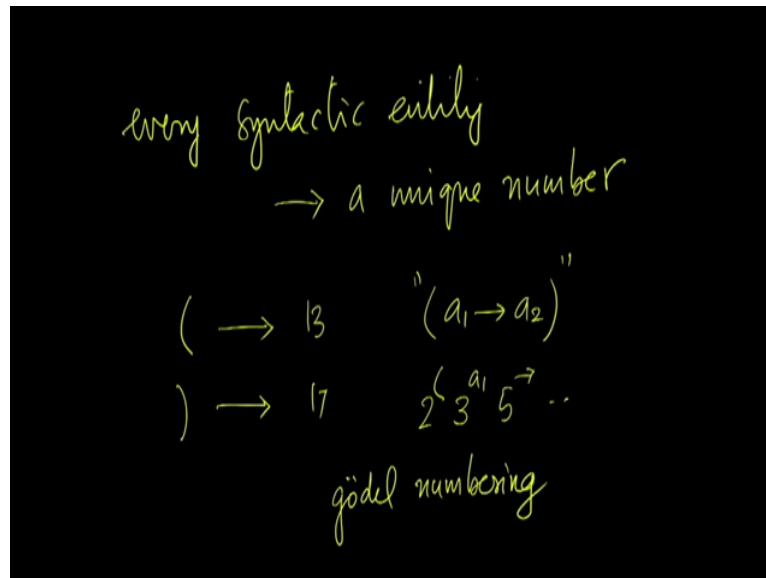 every syntactic entity
→ a unique number
( → 13 "(a₁→a₂)"
) → 17 2^( 3^a₁ 5^→ ..
gödel numbering